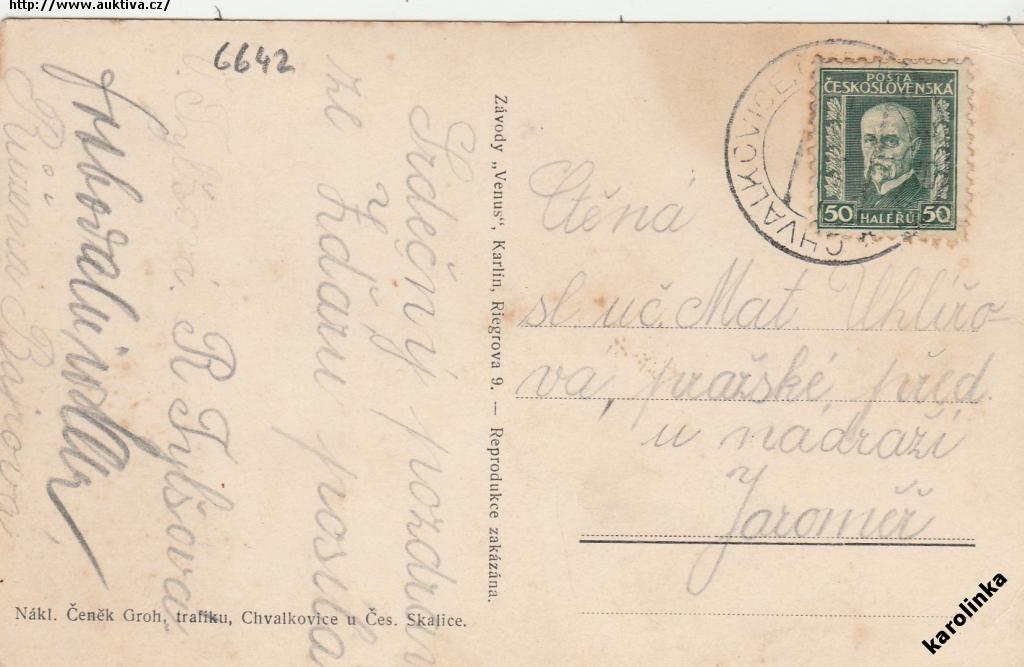 https://www.auktiva.cz/
6642
Srdečný pozdrav
ze Žďáru posílá
R Tylšová
Růžena
Závody „Venus“, Karlín, Riegrova 9. — Reprodukce zakázána.
POŠTA
ČESKOSLOVENSKA
50 HALÉŘŮ 50
CHVALKOVICE
Ctěná
sl. uč. Mat. Uhlířo-
va, pražské před.
u nádraží
Jaroměř
Nákl. Čeněk Groh, trafiku, Chvalkovice u Čes. Skalice.
karolinka